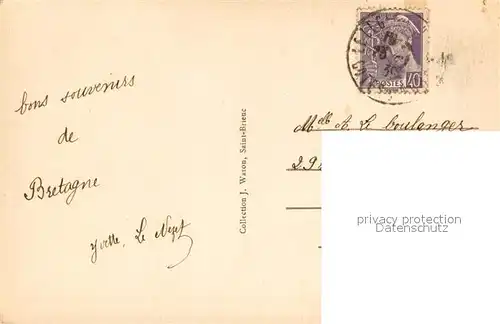 bons souvenirs
de
Bretagne
Yvette, Le
Collection J. Waron, Saint-Brieuc
POSTES 40
Mlle A. Le boulanger
29
privacy protection
Datenschutz